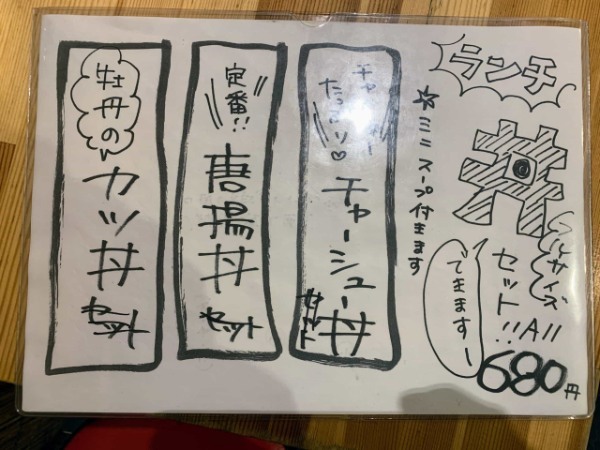 ランチ
丼
フルサイズ
セット!! All
680円
できますー
☆ミニスープ付きます
たっぷり♡
チャーシュー丼
セット
定番!!
唐揚丼
セット
牡丹の
カツ丼
セット